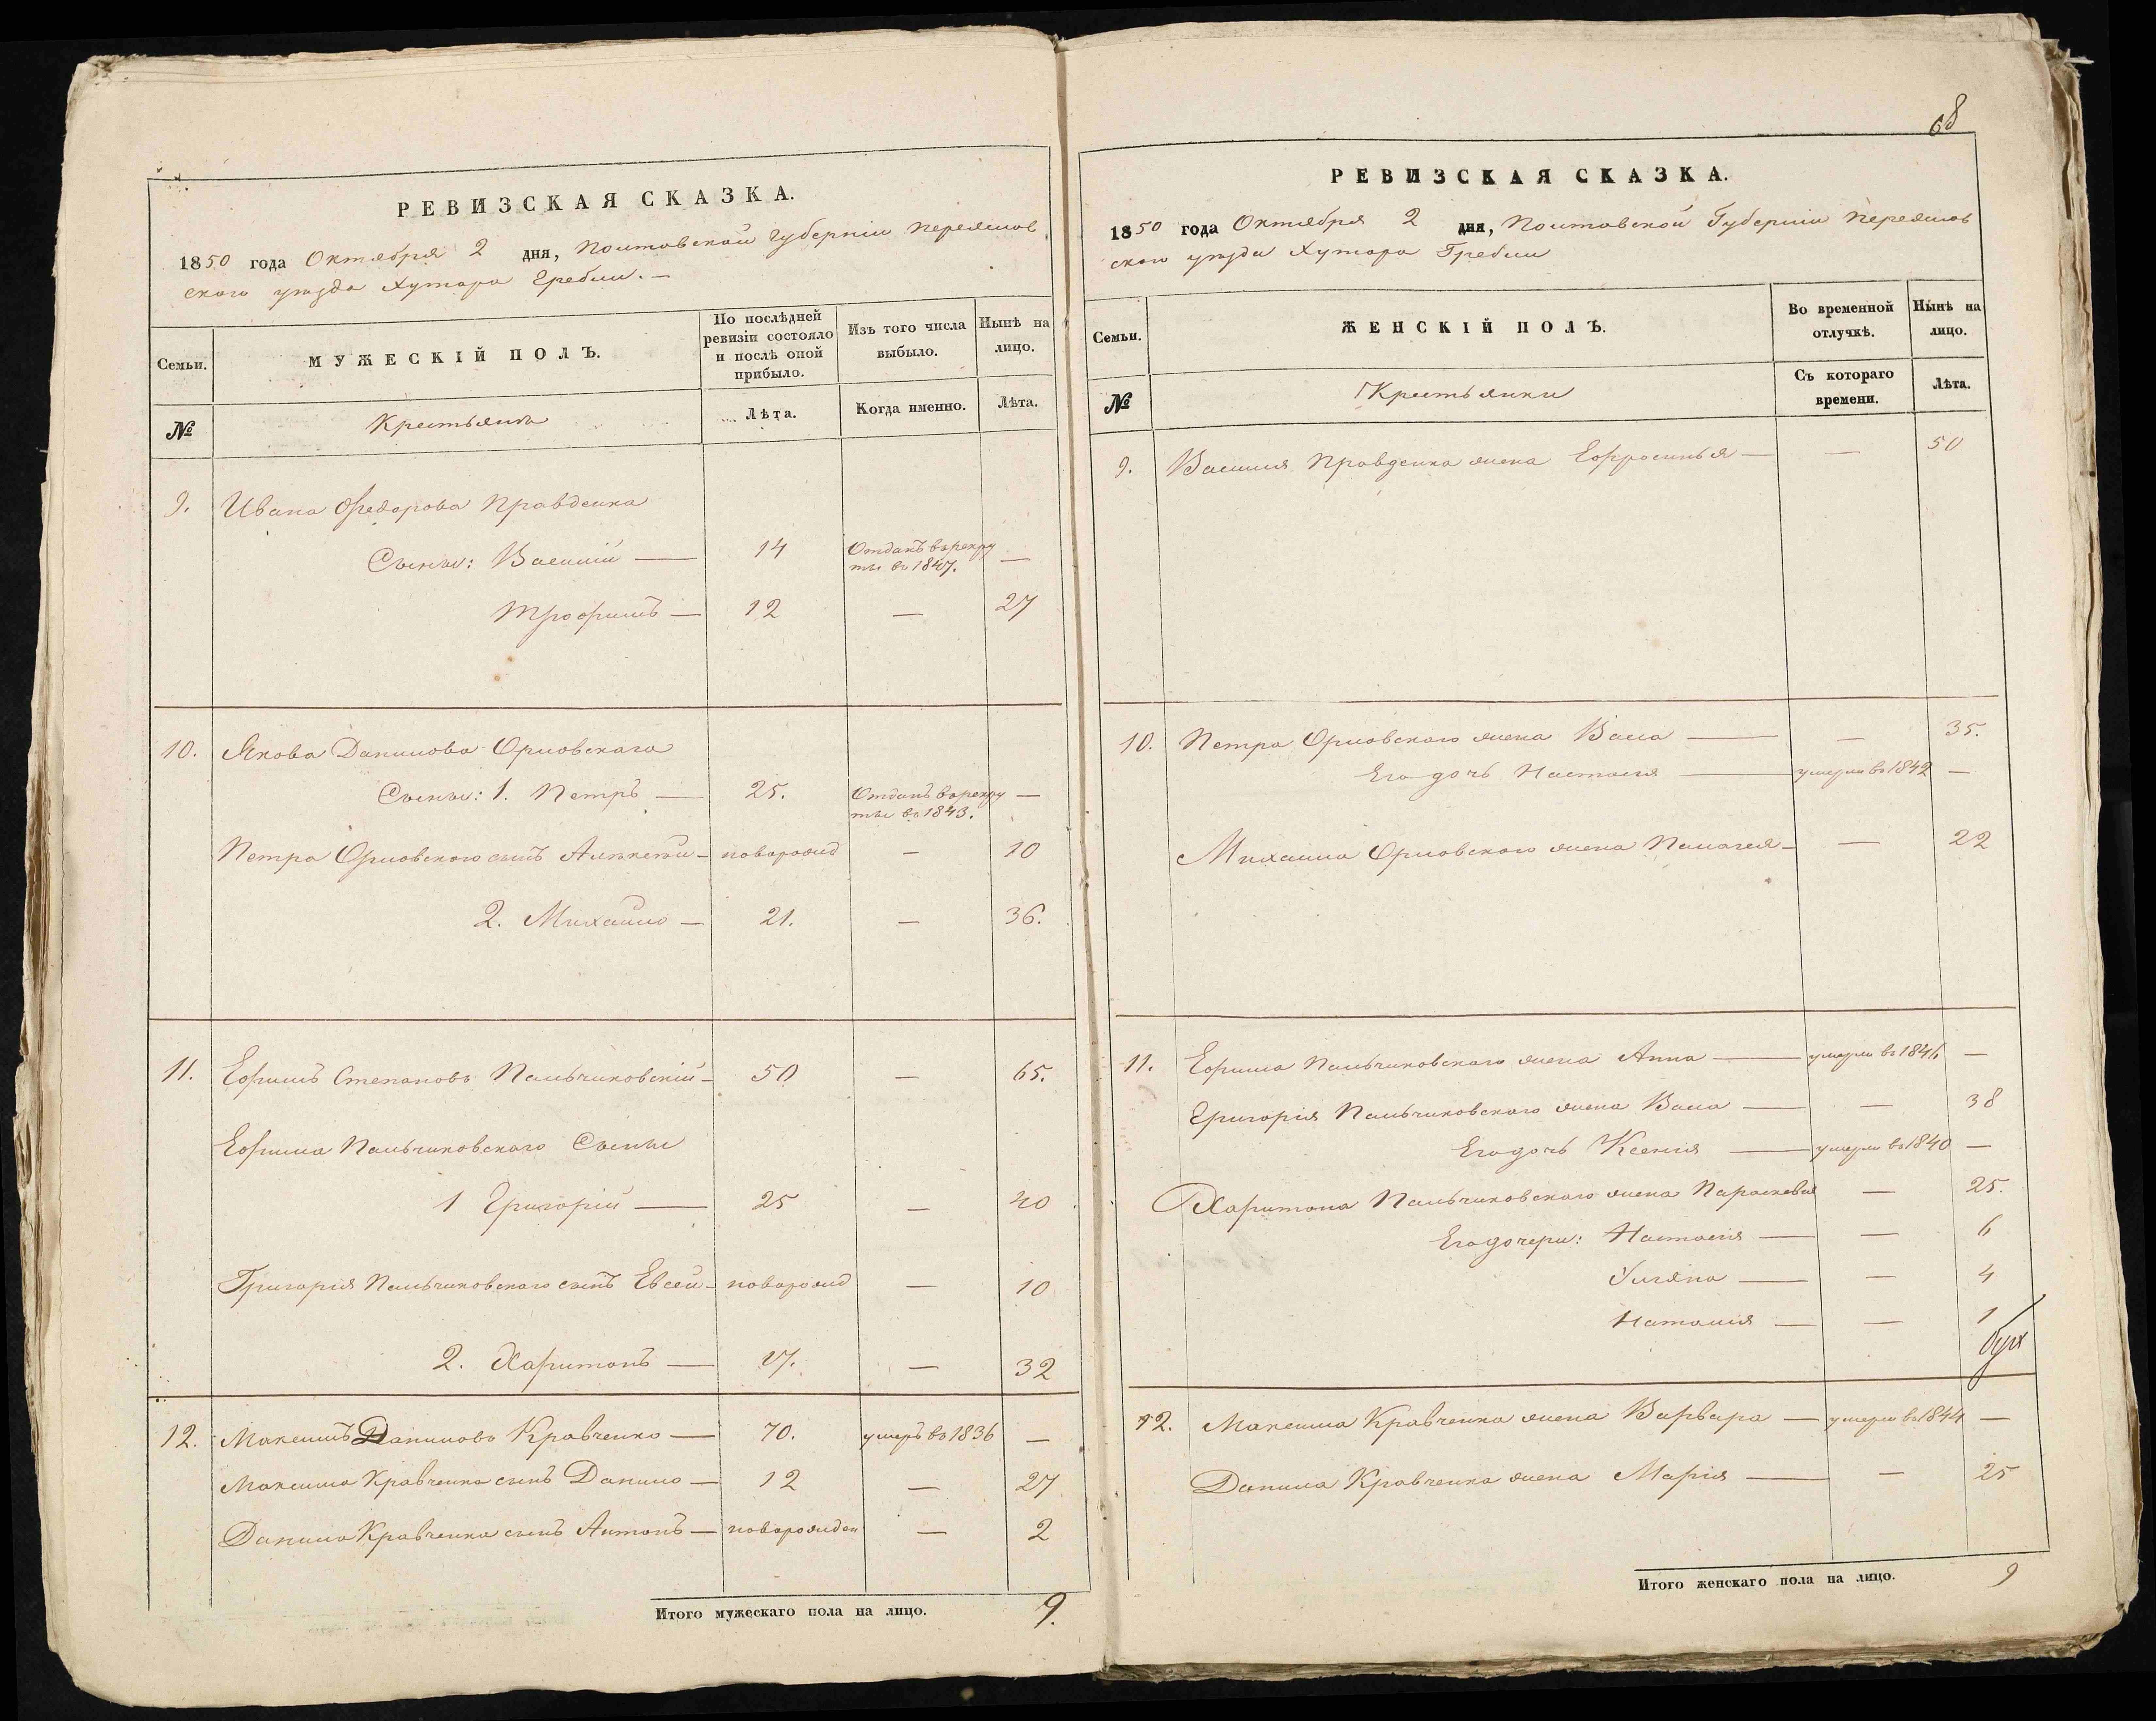 РЕВИЗСКАЯ СКАЗКА.
1850 года Октября 2 дня, Полтавской Губерніи Переяслов
скаго уѣзда Хутора Гребли. —
Семьи.
МУЖЕСКІЙ ПОЛЪ.
По послѣдней ревизіи состояло и послѣ оной прибыло.
Изъ того числа выбыло.
Нынѣ на лицо.
№
Крестьяня
Лѣта.
Когда именно.
Лѣта.
9. Ивана Федорова Правденка
Сыны: Василій — 14 Отданъ въ рекру
ты въ 1847. —
Трофимъ — 12 — 27
10. Якова Данилова Орловскаго
Сыны: 1. Петръ — 25. Отданъ въ рекру —
ты въ 1843.
Петра Орловскаго сынъ Алексѣй — новорожд — 10
2. Михайло — 21. — 36.
11. Ефимъ Степановъ Пальчиковскій — 50 — 65.
Ефима Пальчиковскаго Сыны
1 Григорій — 25 — 40
Григорія Пальчиковскаго сынъ Евсей — новорожд — 10
2. Харитонъ — 17. — 32
12. Максимъ Даниловъ Кравченко — 70. умеръ въ 1836 —
Максима Кравченка сынъ Данило — 12 — 27
Данила Кравченка сынъ Антонъ — новорожден — 2
Итого мужескаго пола на лицо. 9.
68
РЕВИЗСКАЯ СКАЗКА.
1850 года Октября 2 дня, Полтавской Губерніи Переяслов
скаго уѣзда Хутора Гребли
Семьи.
ЖЕНСКІЙ ПОЛЪ.
Во временной отлучкѣ.
Нынѣ на лицо.
№
Крестьянки
Съ котораго времени.
Лѣта.
9. Василія Правденка жена Ефросинья — — 50
10. Петра Орловскаго жена Васса — — 35.
Его дочь Настасія — умерла въ 1842 —
Михайла Орловскаго жена Палагея — — 22
11. Ефима Пальчиковскаго жена Анна — умерла въ 1846 —
Григорія Пальчиковскаго жена Васса — — 38
Его дочь Ксенія — умерла въ 1840 —
Харитона Пальчиковскаго жена Параскевия — 25.
Его дочери: Настасія — — 6
Ульяна — — 4
Наталія — — 1
12. Максима Кравченка жена Варвара — умерла въ 1844 —
Данила Кравченка жена Марія — — 25
Итого женскаго пола на лицо. 9